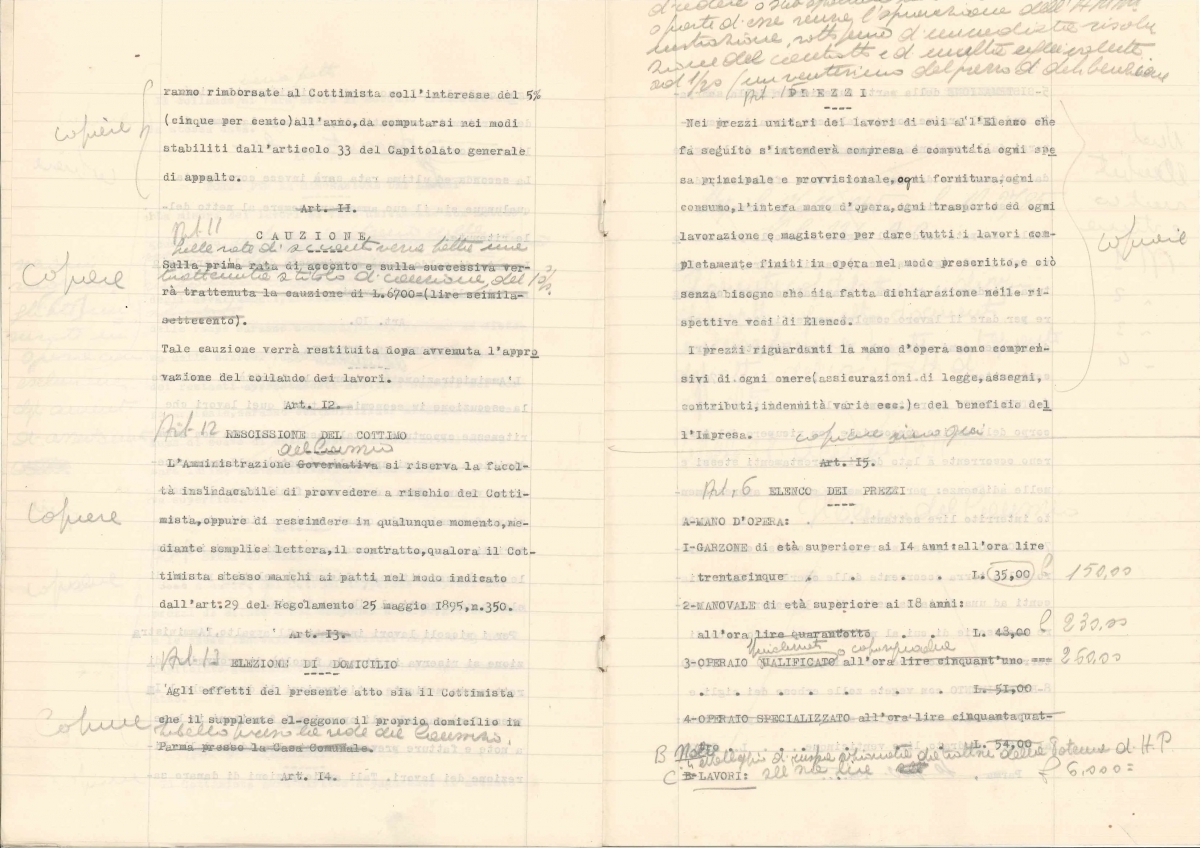 ranno rimborsate al Cottimista coll'interesse del 5%
(cinque per cento)all'anno,da computarsi nei modi
copiere
stabiliti dall'articolo 33 del Capitolato generale
di appalto.
Art. II.
Art 11
CAUZIONE
Sulle rate di acconto verrà
Sulla prima rata di acconto e sulla successiva ver-
Copiere
trattenuta a titolo di cauzione, del
rà trattenuta la cauzione di L.6700=(lire seimila-
settecento).
Tale cauzione verrà restituita dopa avvenuta l'appro
vazione del collando dei lavori.
Art. I2.
Art 12 RESCISSIONE DEL COTTIMO
del Consorzio
L'Amministrazione Governativa si riserva la facol-
tà insindacabile di provvedere a rischio del Cotti-
copiere
mista,oppure di rescindere in qualunque momento,me-
diante semplice lettera,il contratto,qualora il Cot-
timista stesso manchi ai patti nel modo indicato
dall'art:29 del Regolamento 25 maggio I895,n.350.
Art. I3.
Art 13 ELEZIONE DI DOMICILIO
Agli effetti del presente atto sia il Cottimista
Copiere
che il supplente el-eggono il proprio domicilio in
presso la sede del Consorzio.
Parma presso la Casa Comunale.
Art. I4.
o parte di esse senza l'approvazione dell'Ammi
nistrazione, sotto pena d'immediata risolu
zione del contratto e d'multa equivalente
ad 1/20 (un ventesimo del prezzo di deliberazione
Art
PREZZI
Nei prezzi unitari dei lavori di cui all'Elenco che
fa seguito s'intenderà compresa e computata ogni spe
sa principale e provvisionale,ogni fornitura,ogni
consumo,l'intera mano d'opera,ogni trasporto ed ogni
lavorazione e magistero per dare tutti i lavori com-
copiere
pletamente finiti in opera nel modo prescritto,e ciò
senza bisogno che sia fatta dichiarazione nelle ri-
spettive voci di Elenco.
I prezzi riguardanti la mano d'opera sono compren-
sivi di ogni onere(assicurazioni di legge,assegni,
contributi,indennità varie ecc.)e del beneficio del
l'Impresa.
copiare sino qui
Art. I5.
Art. 6 ELENCO DEI PREZZI
A-MANO D'OPERA:
I-GARZONE di età superiore ai I4 anni:all'ora lire
trentacinque . . . . L. 35,00 £ 150,00
2-MANOVALE di età superiore ai I8 anni:
all'ora lire quarantotto . . L. 48,00 £ 230.00
3-OPERAIO QUALIFICATO all'ora lire cinquant'uno === 260.00
. . . . . . . L. 51,00
4-OPERAIO SPECIALIZZATO all'ora lire cinquantaquat-
tro . . . . . . L. 54,00
B Noli
di ruspa della potenza di H.P
C B-LAVORI: lire £ 6.000=